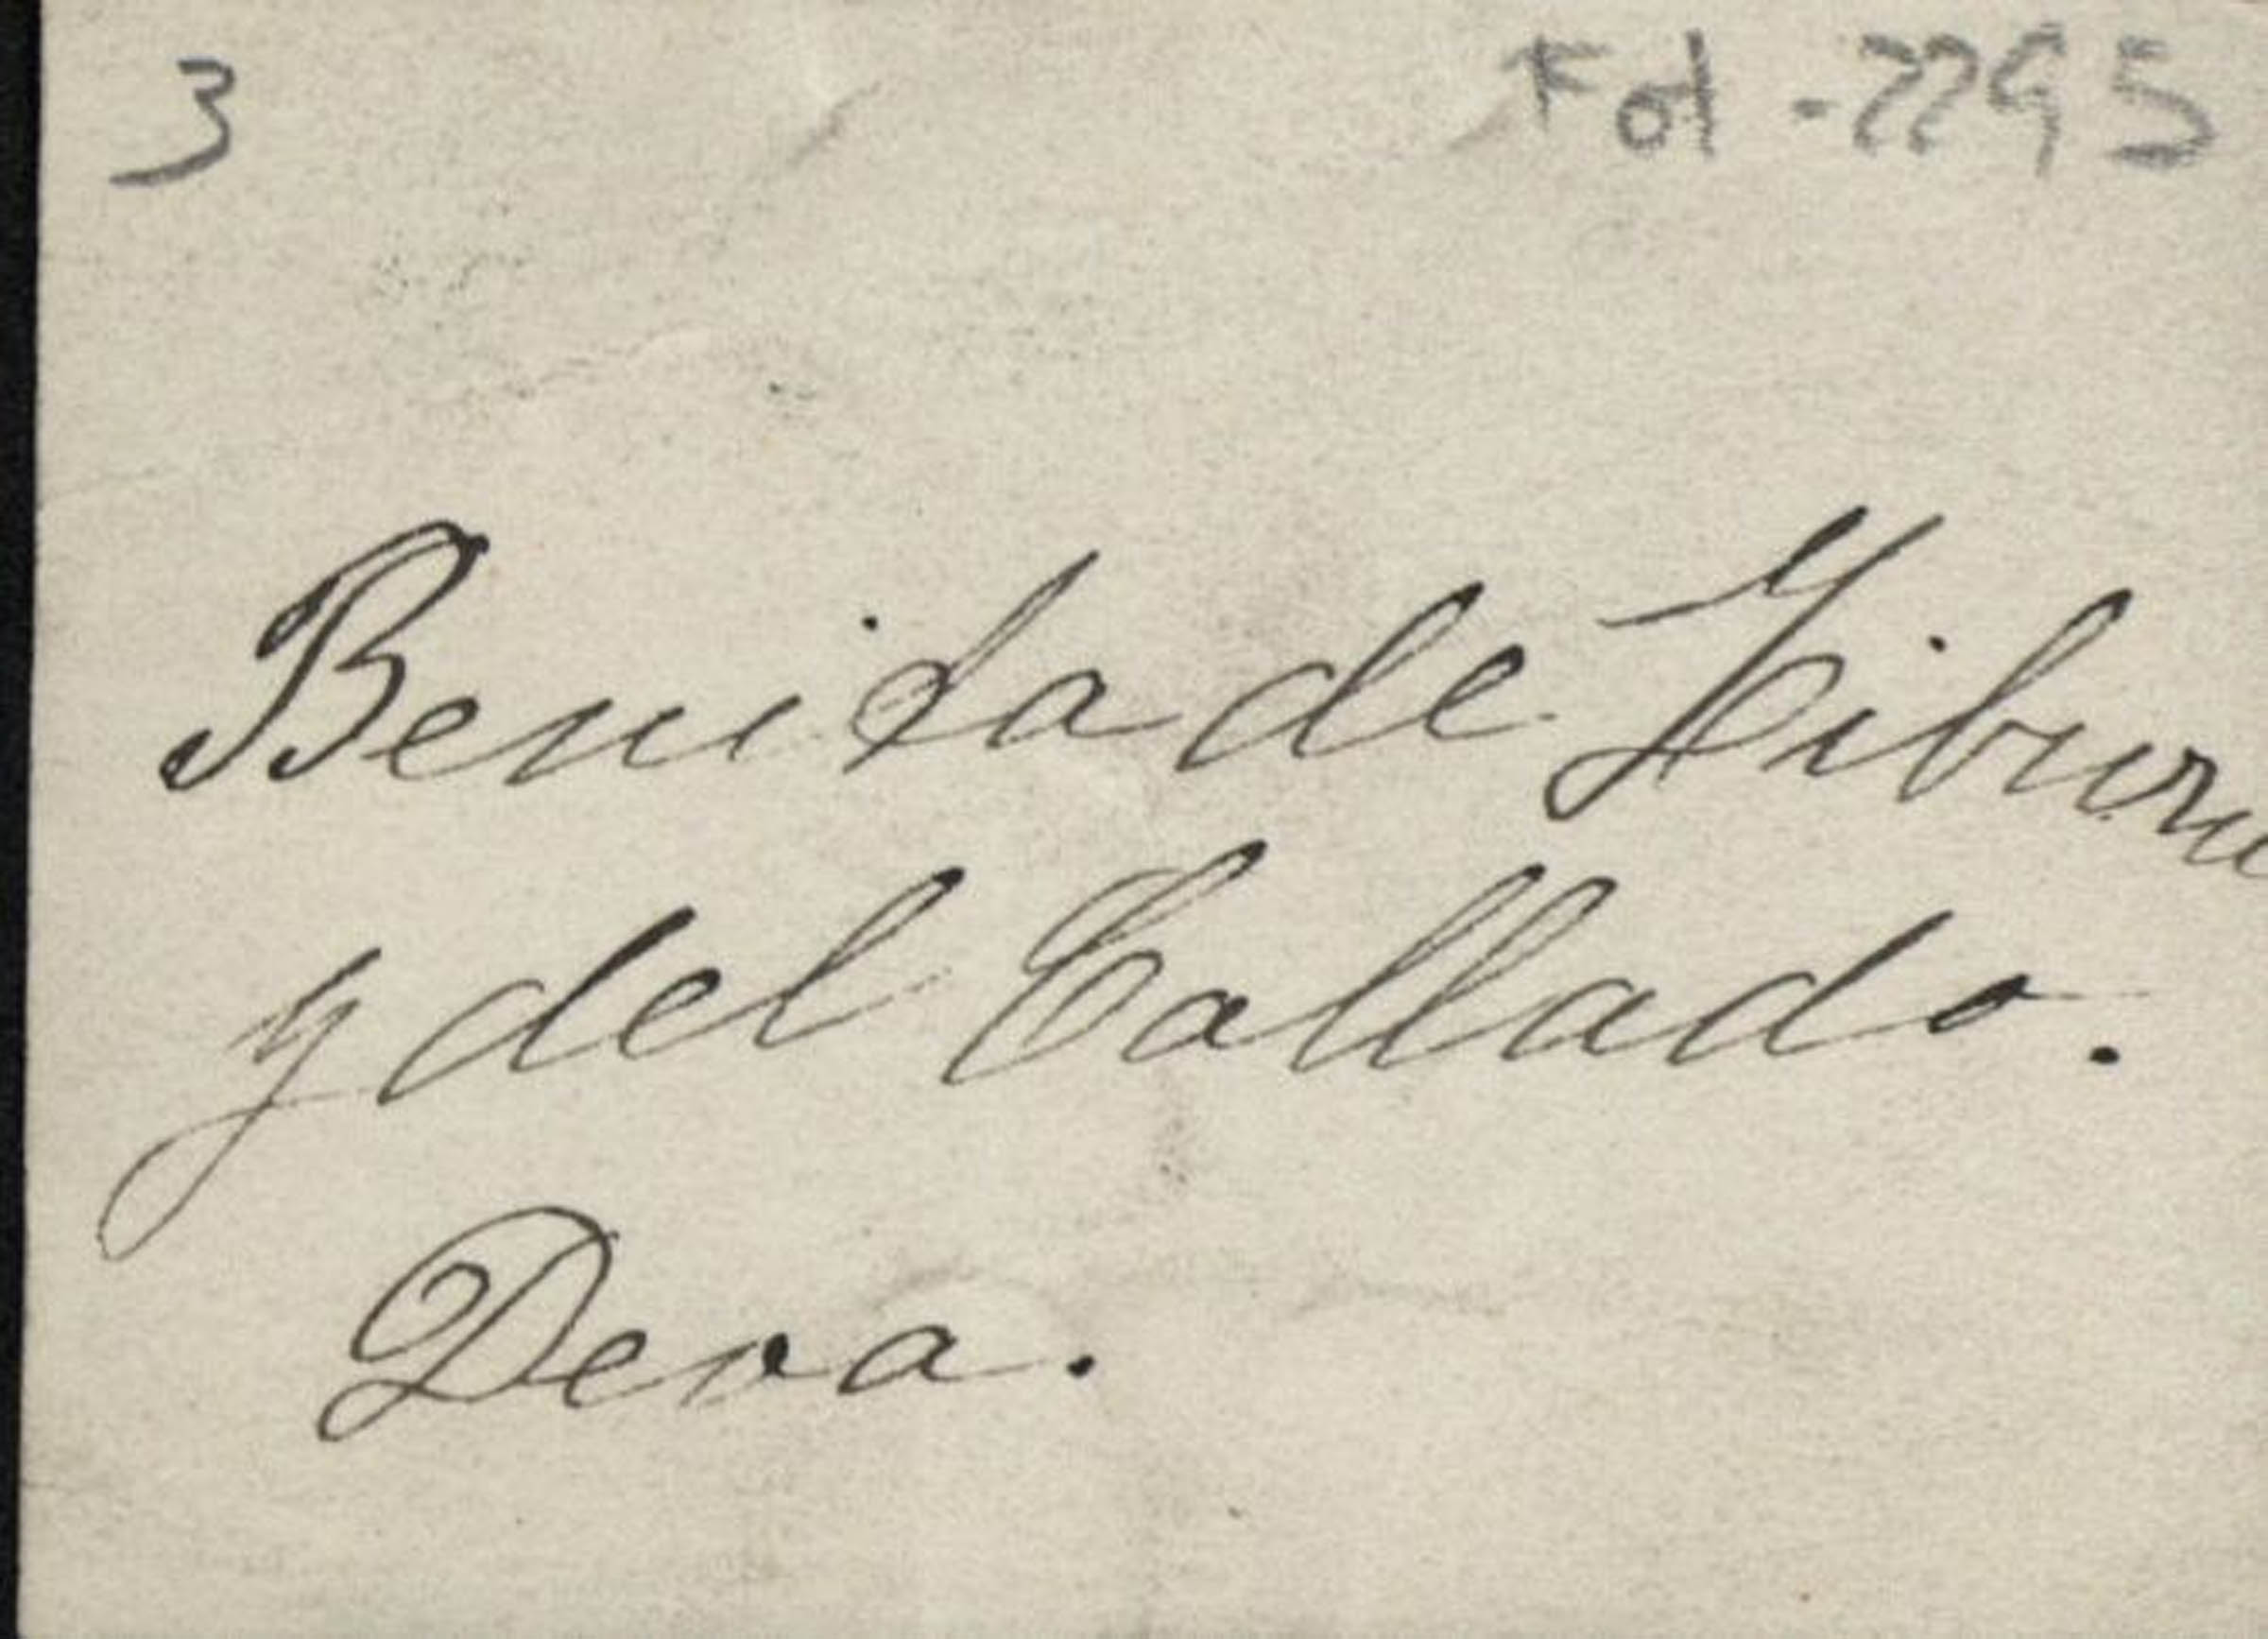 3 Fot-2295
Benita de Ziburu
y del Collado.
Deva.